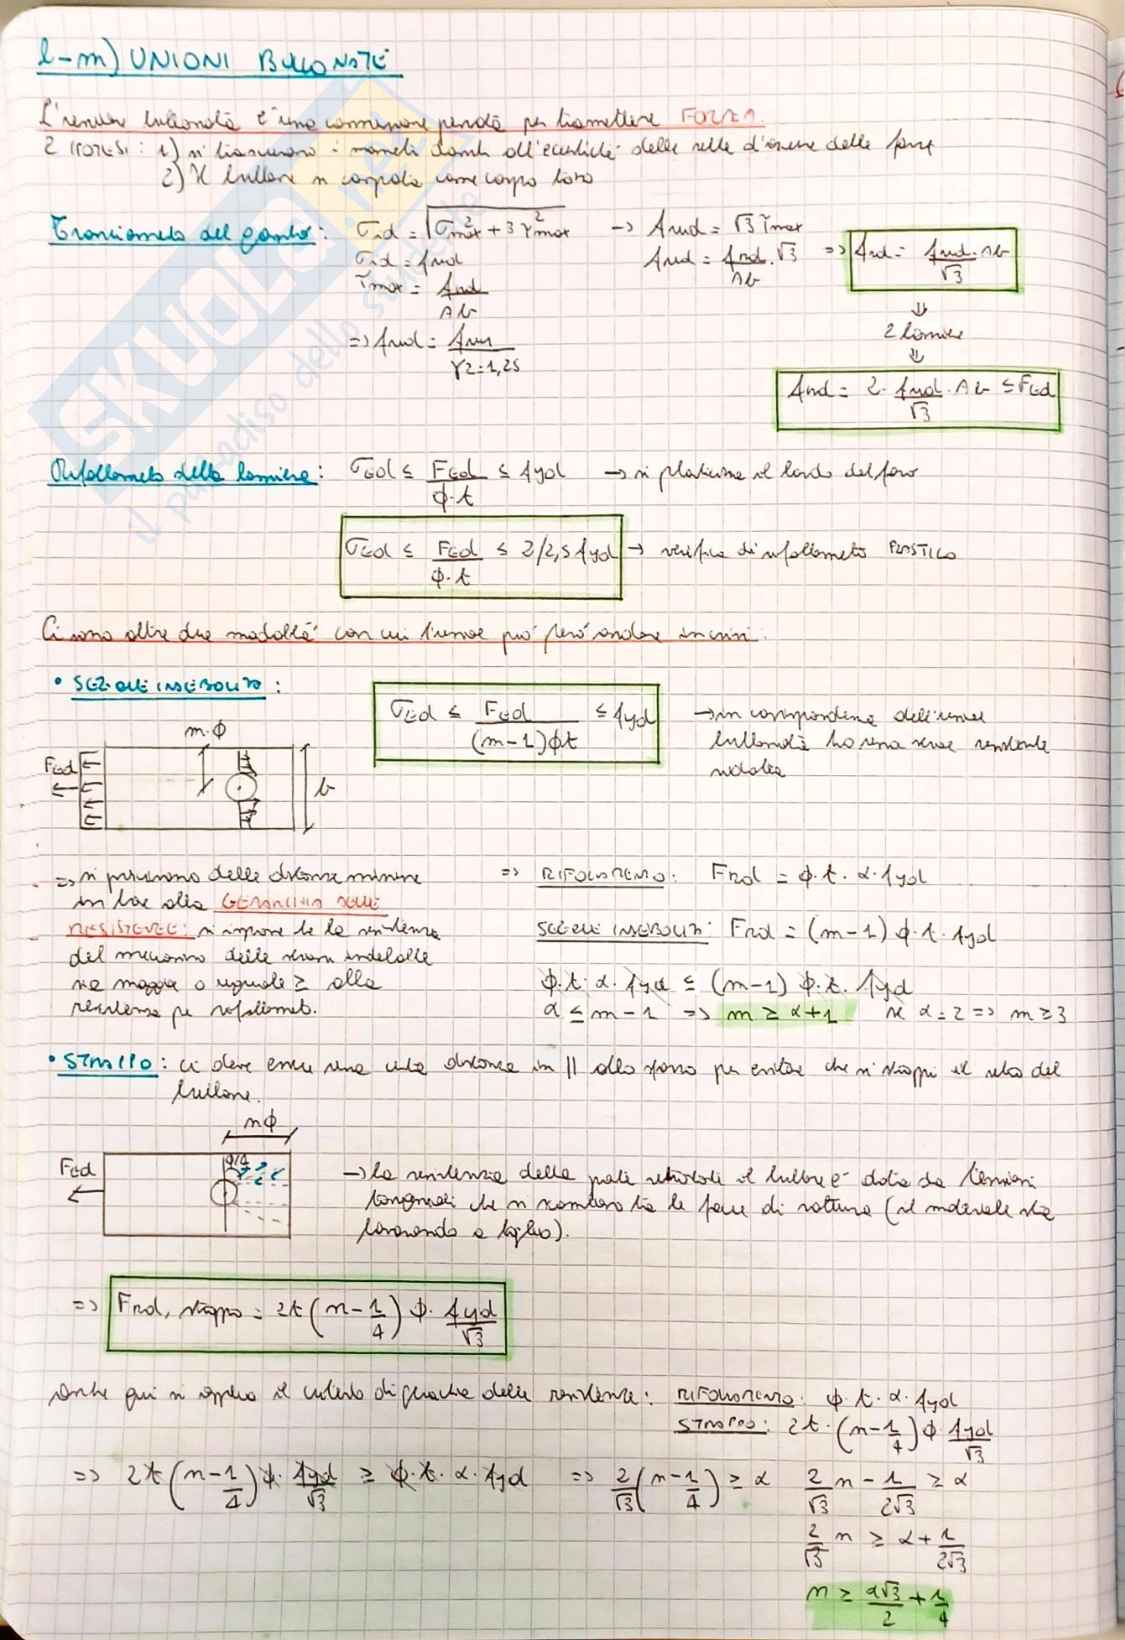 l-m) UNIONI BULLONATE
L'unione bullonata è una connessione pensata per trasmettere FORZA.
2 IPOTESI: 1) si trascurano i momenti dovuti all'eccentricità delle rette d'azione delle forze
2) Il bullone si comporta come corpo
Tranciamento del gambo: σid = √(σ²max + 3τ²max) → fud = √3 τmax
σid = fud fud = Frd/Ab · √3 => Frd = fud/√3 · Ab
τmax = Frd/Ab ⇓
2 lamiere
=> fud = fu/γ2=1,25 ⇓
Frd = 2 · fud/√3 · Ab ≤ FEd
Rifollamento della lamiera: σEd ≤ FEd/ϕ·t ≤ fyd → si plasticizza il bordo del foro
σEd ≤ FEd/ϕ·t ≤ 2/2,5 fyd → verifica di rifollamento PLASTICO
Ci sono altre due modalità con cui l'unione può però andare in crisi:
• SEZIONE INDEBOLITA: σEd ≤ FEd/(m-1)ϕt ≤ fyd → in corrispondenza dell'unione
m·ϕ bullonata ho una sezione resistente
FEd b ridotta
=> si prescrivono delle distanze minime => RIFOLLAMENTO: FRd = ϕ·t·α·fyd
in base alla GERARCHIA DELLE
RESISTENZE: si impone che la resistenza SEZIONE INDEBOLITA: FRd = (m-1) ϕ·t·fyd
del meccanismo della sezione indebolita
sia maggiore o uguale ≥ alla ϕ·t·α·fyd ≤ (m-1) ϕ·t·fyd
resistenza per rifollamento. α ≤ m-1 => m ≥ α+1 se α=2 => m≥3
• STRAPPO: ci deve essere una certa distanza in || allo sforzo per evitare che si strappi il retro del
bullone.
nϕ
FEd ϕ/4 → la resistenza della parte retrostante il bullone è data da tensioni
tangenziali che si scambiano tra le facce di rottura (il materiale sta
lavorando a taglio).
=> FRd, strappo = 2t (n-1/4) ϕ · fyd/√3
Anche qui si applica il criterio di gerarchia delle resistenze: RIFOLLAMENTO: ϕ·t·α·fyd
STRAPPO: 2t·(n-1/4)ϕ fyd/√3
=> 2t (n-1/4) ϕ · fyd/√3 ≥ ϕ·t·α·fyd => 2/√3 (n-1/4) ≥ α 2/√3 n - 1/2√3 ≥ α
2/√3 n ≥ α + 1/2√3
n ≥ α√3/2 + 1/4